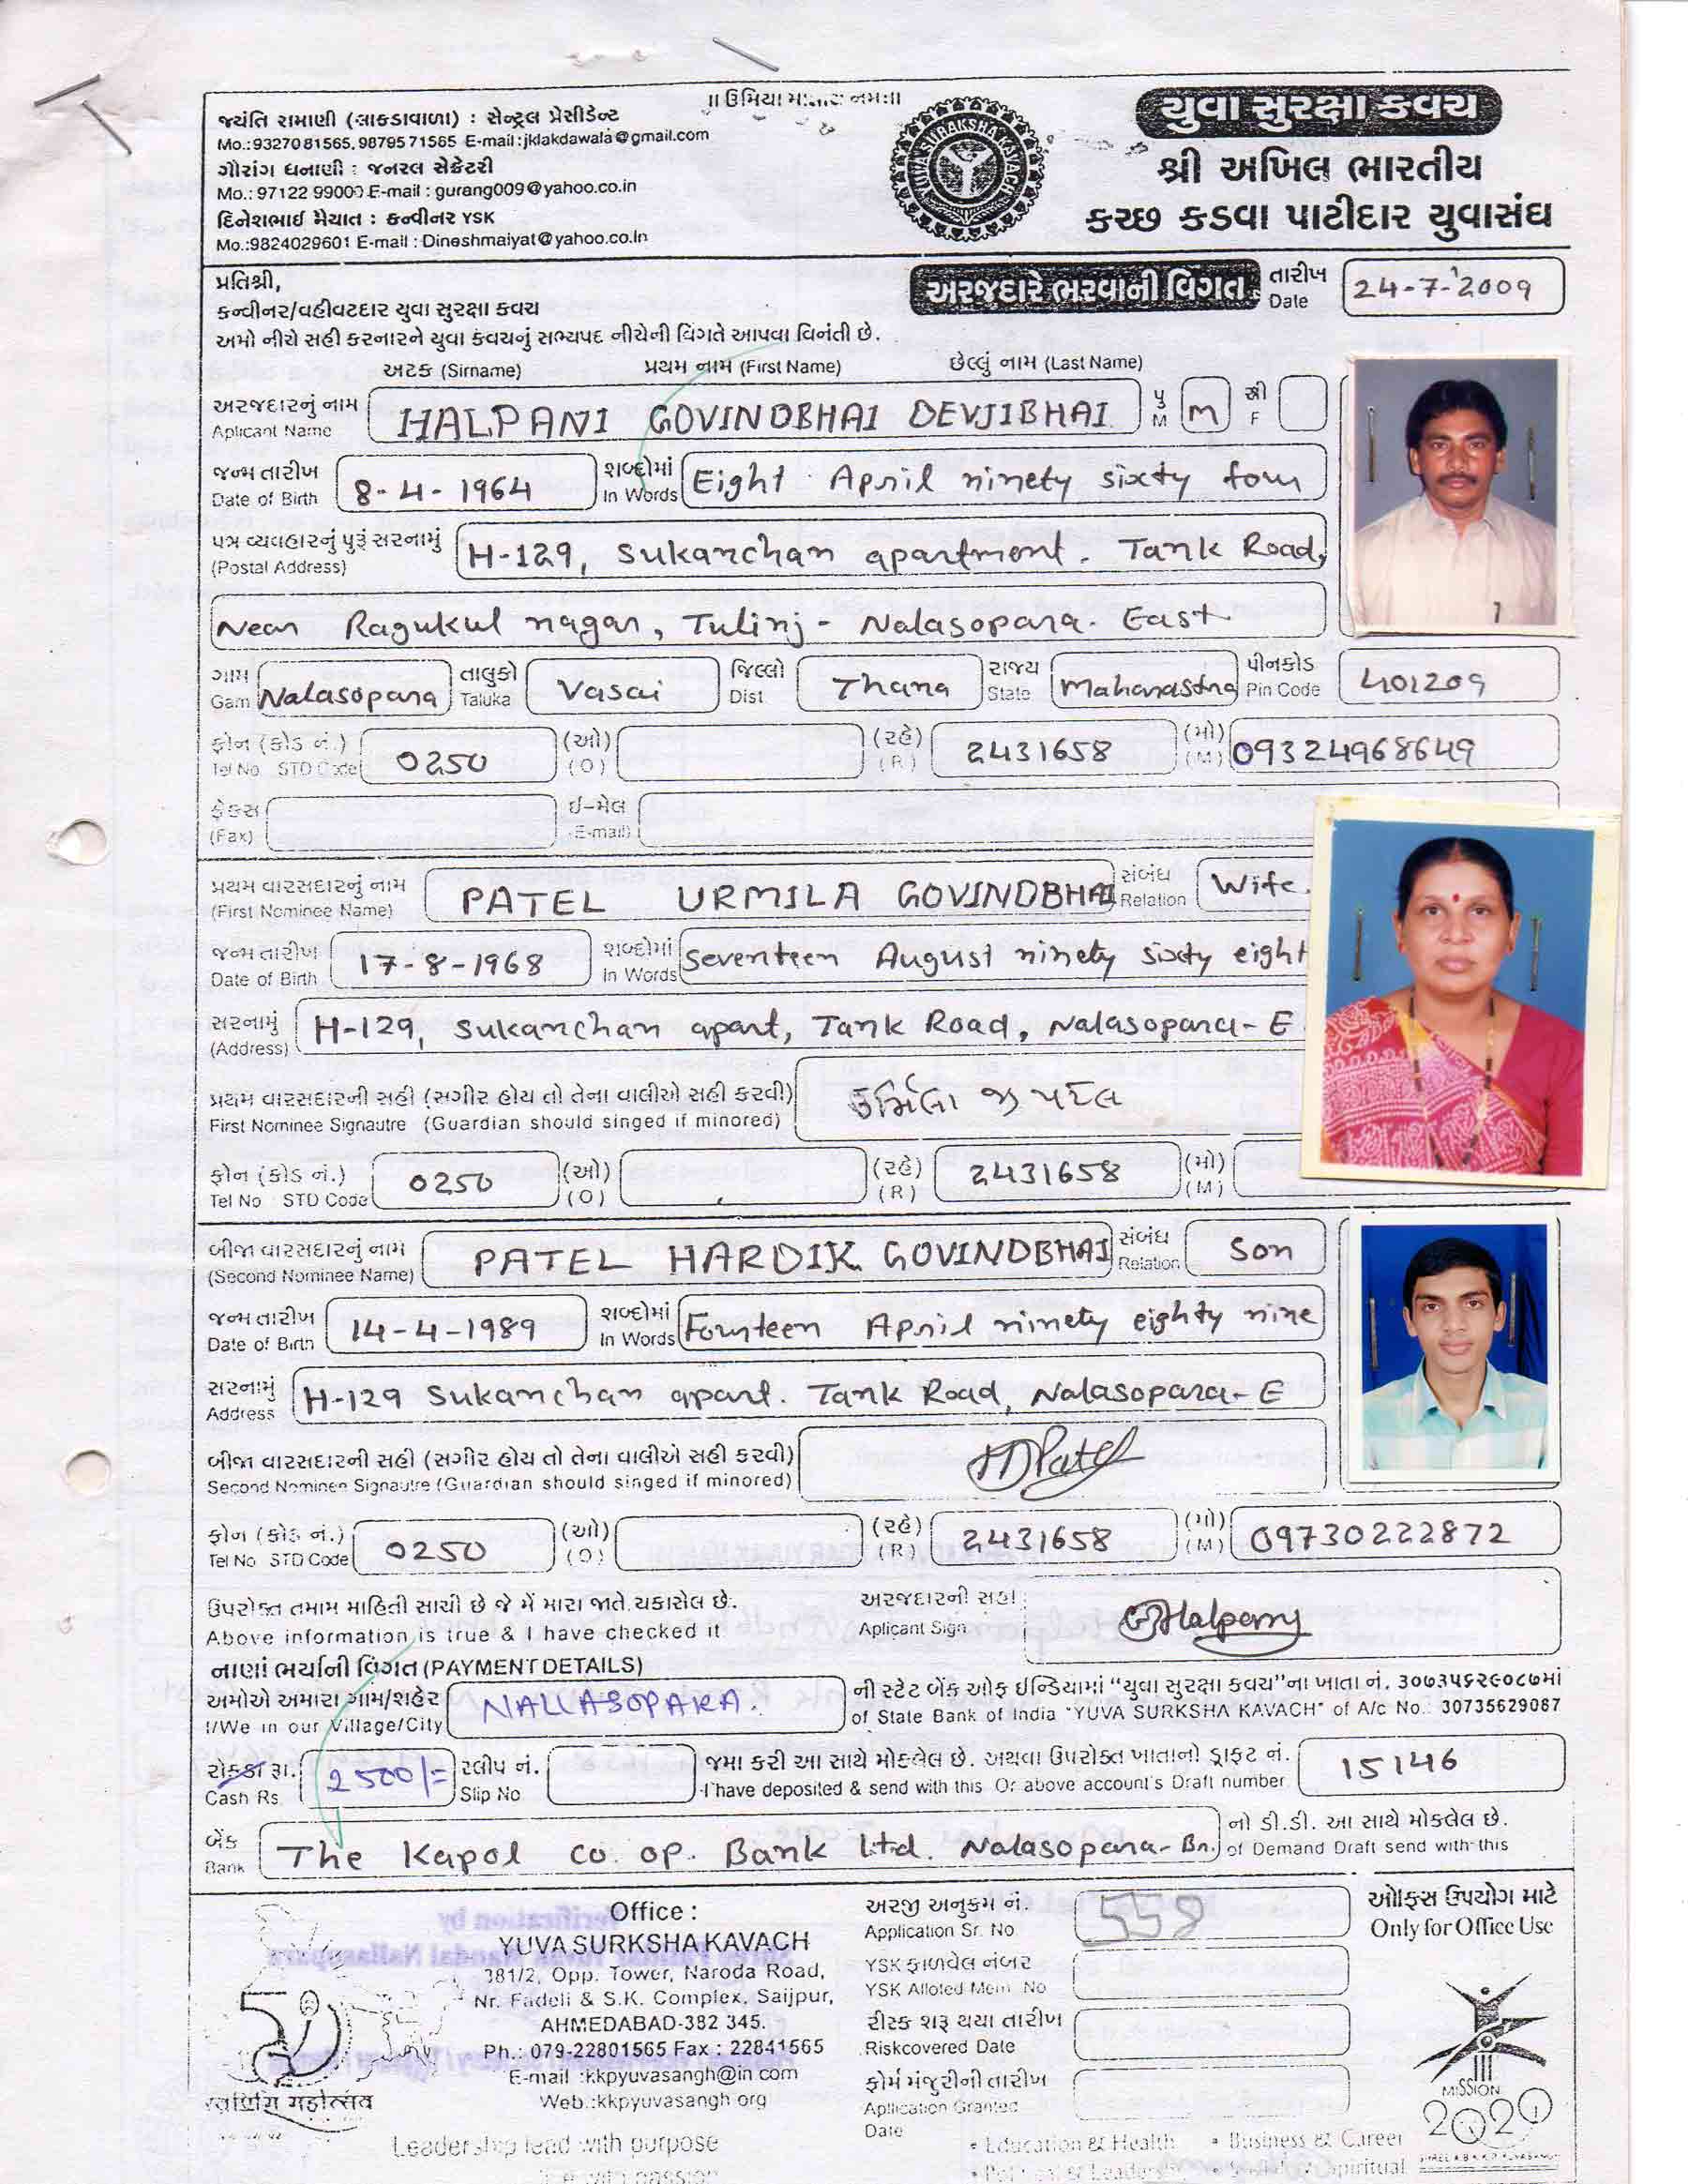 ॥ ઉમિયા માતાય નમઃ॥
જયંતિ રામાણી (લાકડાવાળા) : સેન્ટ્રલ પ્રેસીડેન્ટ
Mo.:9327081565, 9879571565 E-mail:jklakdawala@gmail.com
ગૌરાંગ ધનાણી : જનરલ સેક્રેટરી
Mo.: 97122 99000 E-mail : gurang009@yahoo.co.in
દિનેશભાઈ મૈયાત : કન્વીનર YSK
Mo.:9824029601 E-mail : Dineshmaiyat@yahoo.co.in
YUVA SURAKSHA KAVACH
યુવા સુરક્ષા કવચ
શ્રી અખિલ ભારતીય
કચ્છ કડવા પાટીદાર યુવાસંઘ
પ્રતિશ્રી,
કન્વીનર/વહીવટદાર યુવા સુરક્ષા કવચ
અમો નીચે સહી કરનારને યુવા કવચનું સભ્યપદ નીચેની વિગતે આપવા વિનંતી છે.
અરજદારે ભરવાની વિગત
તારીખ Date 24-7-2009
અટક (Sirname) પ્રથમ નામ (First Name) છેલ્લું નામ (Last Name)
અરજદારનું નામ Aplicant Name HALPANI GOVINDBHAI DEVJIBHAI પુ M M સ્ત્રી F
જન્મ તારીખ Date of Birth 8-4-1964 શબ્દોમાં In Words Eight April ninety sixty four
પત્ર વ્યવહારનું પુરૂં સરનામું (Postal Address) H-129, Sukanchan apartment. Tank Road,
Near Ragukul nagar, Tulinj - Nalasopara. East
ગામ Gam Nalasopara તાલુકો Taluka Vasai જિલ્લો Dist Thana રાજ્ય State Maharastra પીનકોડ Pin Code 401209
ફોન (કોડ નં.) Tel No. STD Code 0250 (ઓ) (O) (રહે) (R) 2431658 (મો) (M) 09324968649
ફેક્સ (Fax) ઈ-મેલ (E-mail)
પ્રથમ વારસદારનું નામ (First Nominee Name) PATEL URMILA GOVINDBHAI સંબંધ Relation Wife.
જન્મ તારીખ Date of Birth 17-8-1968 શબ્દોમાં In Words Seventeen August ninety sixty eight
સરનામું (Address) H-129, Sukanchan apart, Tank Road, Nalasopara- E
પ્રથમ વારસદારની સહી (સગીર હોય તો તેના વાલીએ સહી કરવી) ઉર્મિલા જી પટેલ
First Nominee Signautre (Guardian should singed if minored)
ફોન (કોડ નં.) Tel No STD Code 0250 (ઓ) (O) (રહે) (R) 2431658 (મો) (M)
બીજા વારસદારનું નામ (Second Nominee Name) PATEL HARDIK GOVINDBHAI સંબંધ Relation Son
જન્મ તારીખ Date of Birth 14-4-1989 શબ્દોમાં In Words Fourteen April ninety eighty nine
સરનામું Address H-129 Sukanchan apart. Tank Road, Nalasopara- E
બીજા વારસદારની સહી (સગીર હોય તો તેના વાલીએ સહી કરવી) Patel
Second Nominee Signautre (Guardian should singed if minored)
ફોન (કોડ નં.) Tel No STD Code 0250 (ઓ) (O) (રહે) (R) 2431658 (મો) (M) 09730222872
ઉપરોક્ત તમામ માહિતી સાચી છે જે મેં મારા જાતે ચકાસેલ છે. અરજદારની સહી
Above information is true & I have checked it Aplicant Sign Halpany
નાણાં ભર્યાની વિગત (PAYMENT DETAILS)
અમોએ અમારા ગામ/શહેર NALLASOPARA. ની સ્ટેટ બેંક ઓફ ઈન્ડિયામાં "યુવા સુરક્ષા કવચ"ના ખાતા નં. ૩૦૭૩૫૬૨૯૦૮૭માં
I/We in our Village/City of State Bank of India "YUVA SURKSHA KAVACH" of A/c No.: 30735629087
રોકડા રૂા. 2500/= સ્લીપ નં. જમા કરી આ સાથે મોકલેલ છે. અથવા ઉપરોક્ત ખાતાનો ડ્રાફટ નં. 15146
Cash Rs. Slip No I have deposited & send with this Or above account's Draft number
બેંક Bank The Kapol co. op. Bank Ltd. Nalasopara- Bn. નો ડી.ડી. આ સાથે મોકલેલ છે.
of Demand Draft send with this
Office :
YUVA SURKSHA KAVACH
381/2, Opp. Tower, Naroda Road,
Nr. Fadeli & S.K. Complex, Saijpur,
AHMEDABAD-382 345.
Ph.: 079-22801565 Fax : 22841565
E-mail :kkpyuvasangh@in.com
Web.:kkpyuvasangh.org
અરજી અનુક્રમ નં. Application Sr. No 559
YSK ફાળવેલ નંબર YSK Alloted Mem No
રીસ્ક શરૂ થયા તારીખ Riskcovered Date
ફોર્મ મંજુરીની તારીખ Apllication Granted Date
ઓફિસ ઉપયોગ માટે
Only for Office Use
MISSION
2020
Leadership lead with purpose
• Education & Health • Business & Career